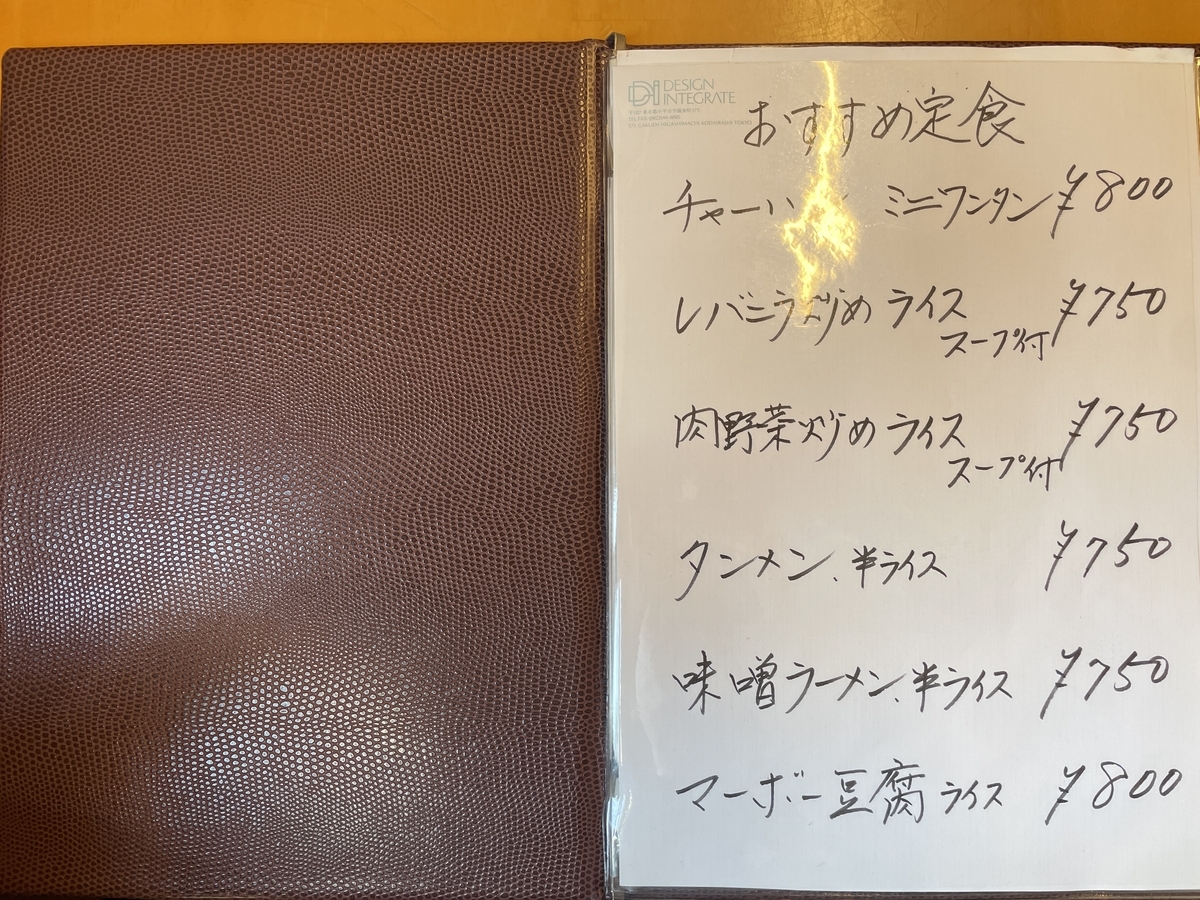 DESIGN
INTEGRATE
おすすめ定食
チャーハ ミニワンタン ¥800
レバニラ炒め ライス ¥750
スープ付
肉野菜炒め ライス ¥750
スープ付
タンメン、半ライス ¥750
味噌ラーメン、半ライス ¥750
マーボー豆腐 ライス ¥800